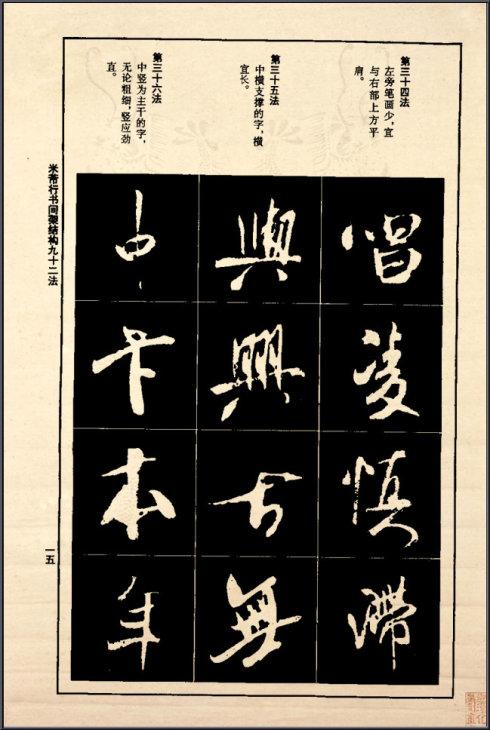 第三十四法
左旁笔画少，宜
与右部上方平
肩。
唱
凌
慎
滞
第三十五法
中横支撑的字，横
宜长。
与
兴
古
无
第三十六法
中竖为主干的字，
无论粗细，竖应劲
直。
中
卡
本
年
米芾行书间架结构九十二法
一五